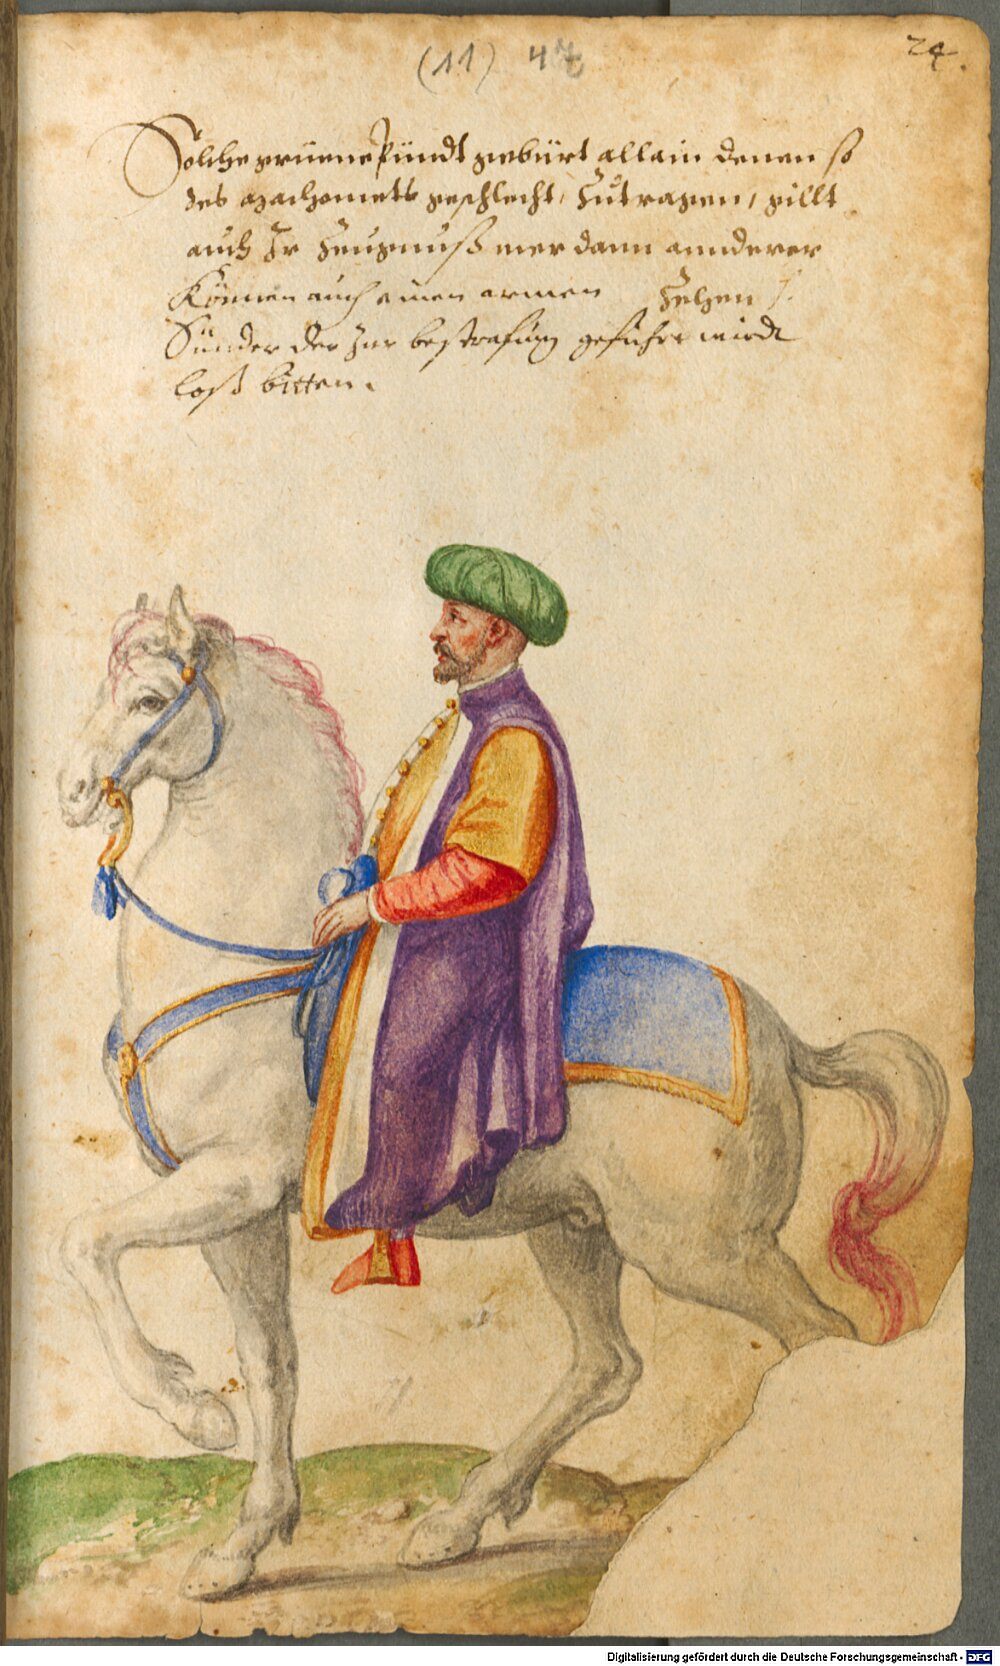 (11) 47
24.
Solche gruene Pündt gebürt allain denen so
des Machomets geschlecht, Zutragen, gillt
auch Ir Zeugnuß mer dann annderer
Können auch einen armen Zehen
Sünder der Zur bestrafung gefuhrt wirdt
loß bitten.
Digitalisierung gefördert durch die Deutsche Forschungsgemeinschaft - DFG